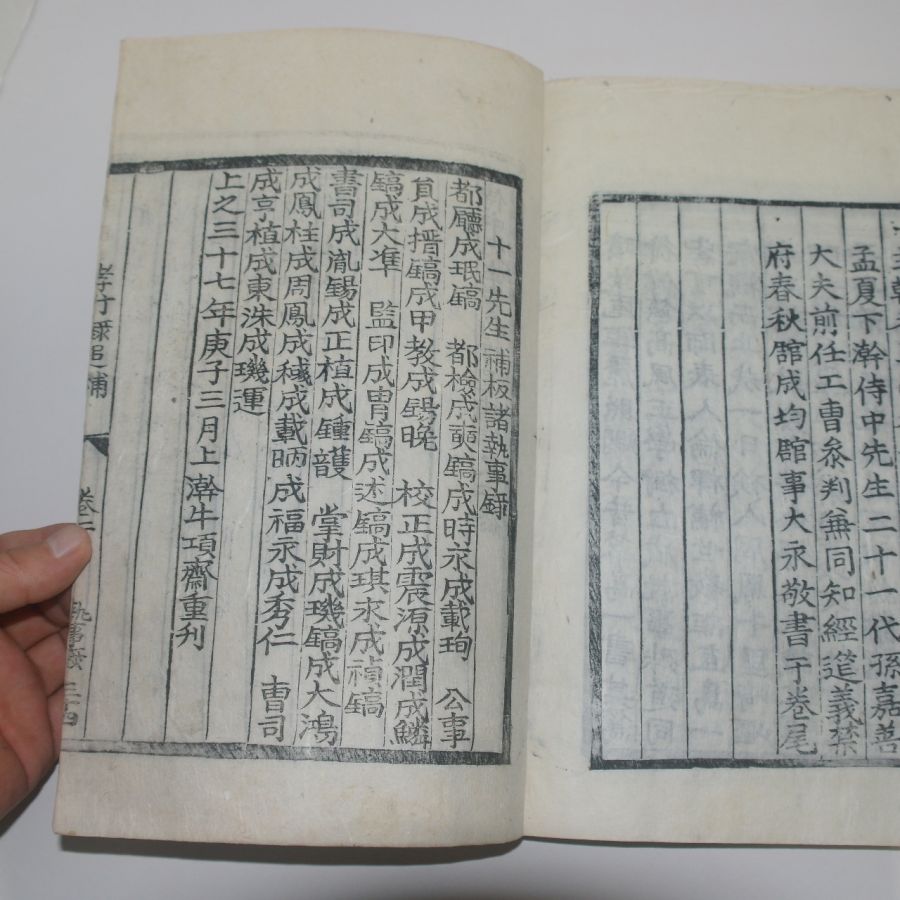 孟夏下澣侍中先生二十一代孫嘉善
大夫前任工曹參判兼同知經筵義禁
府春秋館成均館事大永敬書于卷尾
十一先生補板諸執事錄
都廳成珉鎬 都檢成 鎬成時永成載珣 公事
員成搢鎬成甲教成錫晚 校正成震源成潤成鱗
鎬成大準 監印成胄鎬成述鎬成琪永成禎鎬
書司成胤錫成正植成鍾頀 掌財成璣鎬成大鴻
成鳳柱成周鳳成穢成載昞成福永成秀仁 曹司
成亨植成東洙成璣運
上之三十七年庚子三月上澣牛項齋重刋